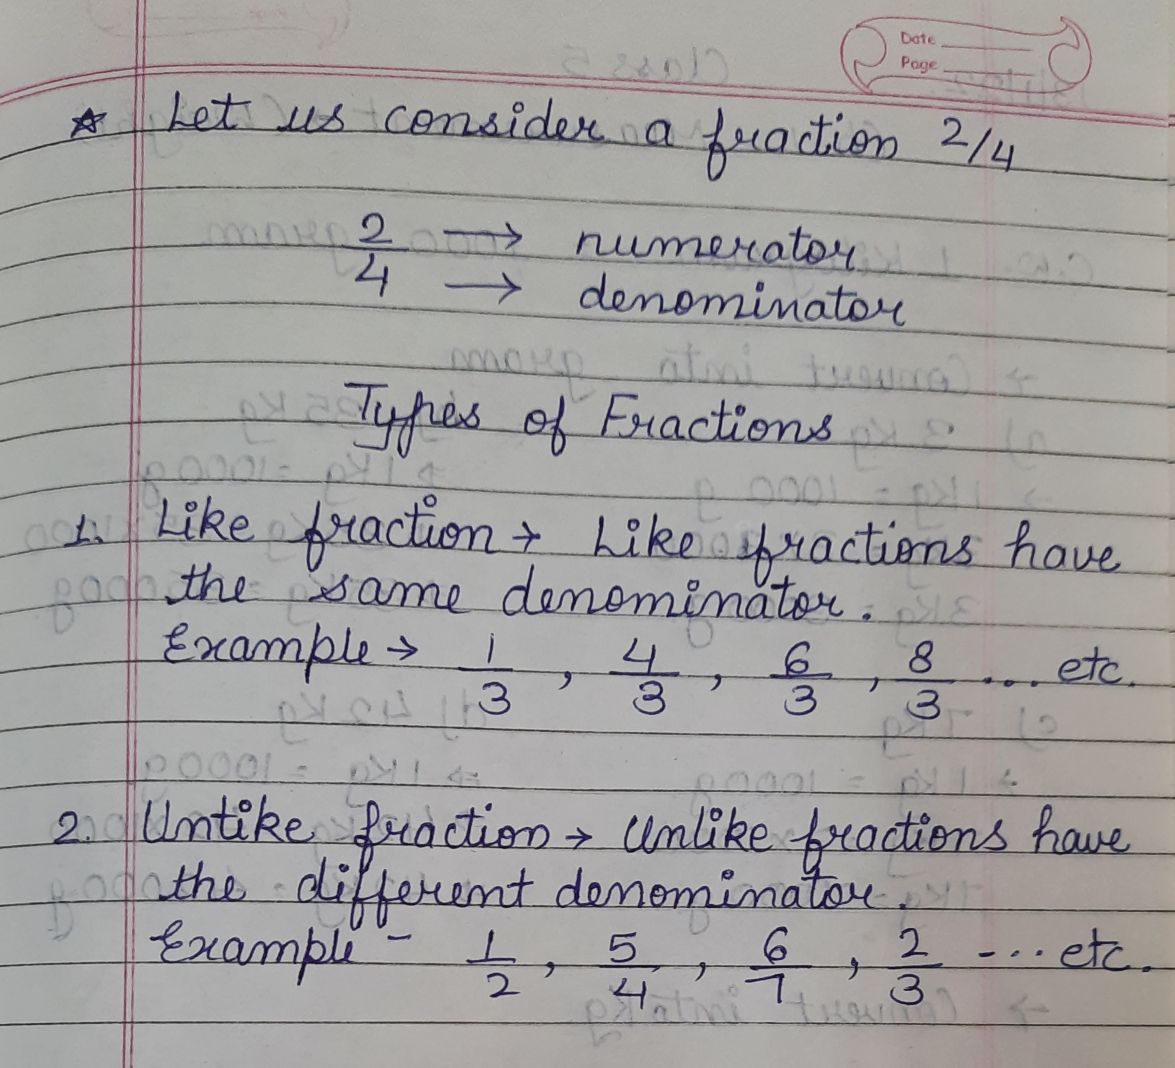 Date
Page
☆ Let us consider a fraction 2/4
2/4 → numerator
→ denominator
Types of Fractions
1. Like fraction → Like fractions have
the same denominator.
Example → 1/3, 4/3, 6/3, 8/3 ... etc.
2. Untike fraction → Unlike fractions have
the different denominator.
Example - 1/2, 5/4, 6/7, 2/3 -... etc.